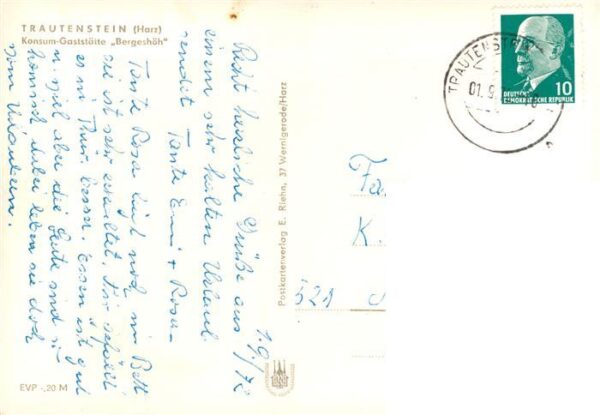 TRAUTENSTEIN (Harz)
Konsum-Gaststätte „Bergeshöh"
1.9./72
Recht herzliche Grüße aus
einem sehr kalten Urlaub
sendet Tante Emi + Rosa.
Tante Rosa liegt noch im Bett
sie ist sehr erkältet. Mir gefällt
es in Thür. besser. Essen ist gut
u. viel aber die Leute sind so
komisch dabei leben sie doch
vom Urlaubern.
EVP -,20 M
Postkartenverlag E. Riehn, 37 Wernigerode/Harz
TRAUTENSTEIN
01.9.
10
DEUTSCHE
DEMOKRATISCHE REPUBLIK
Fa
K.
521